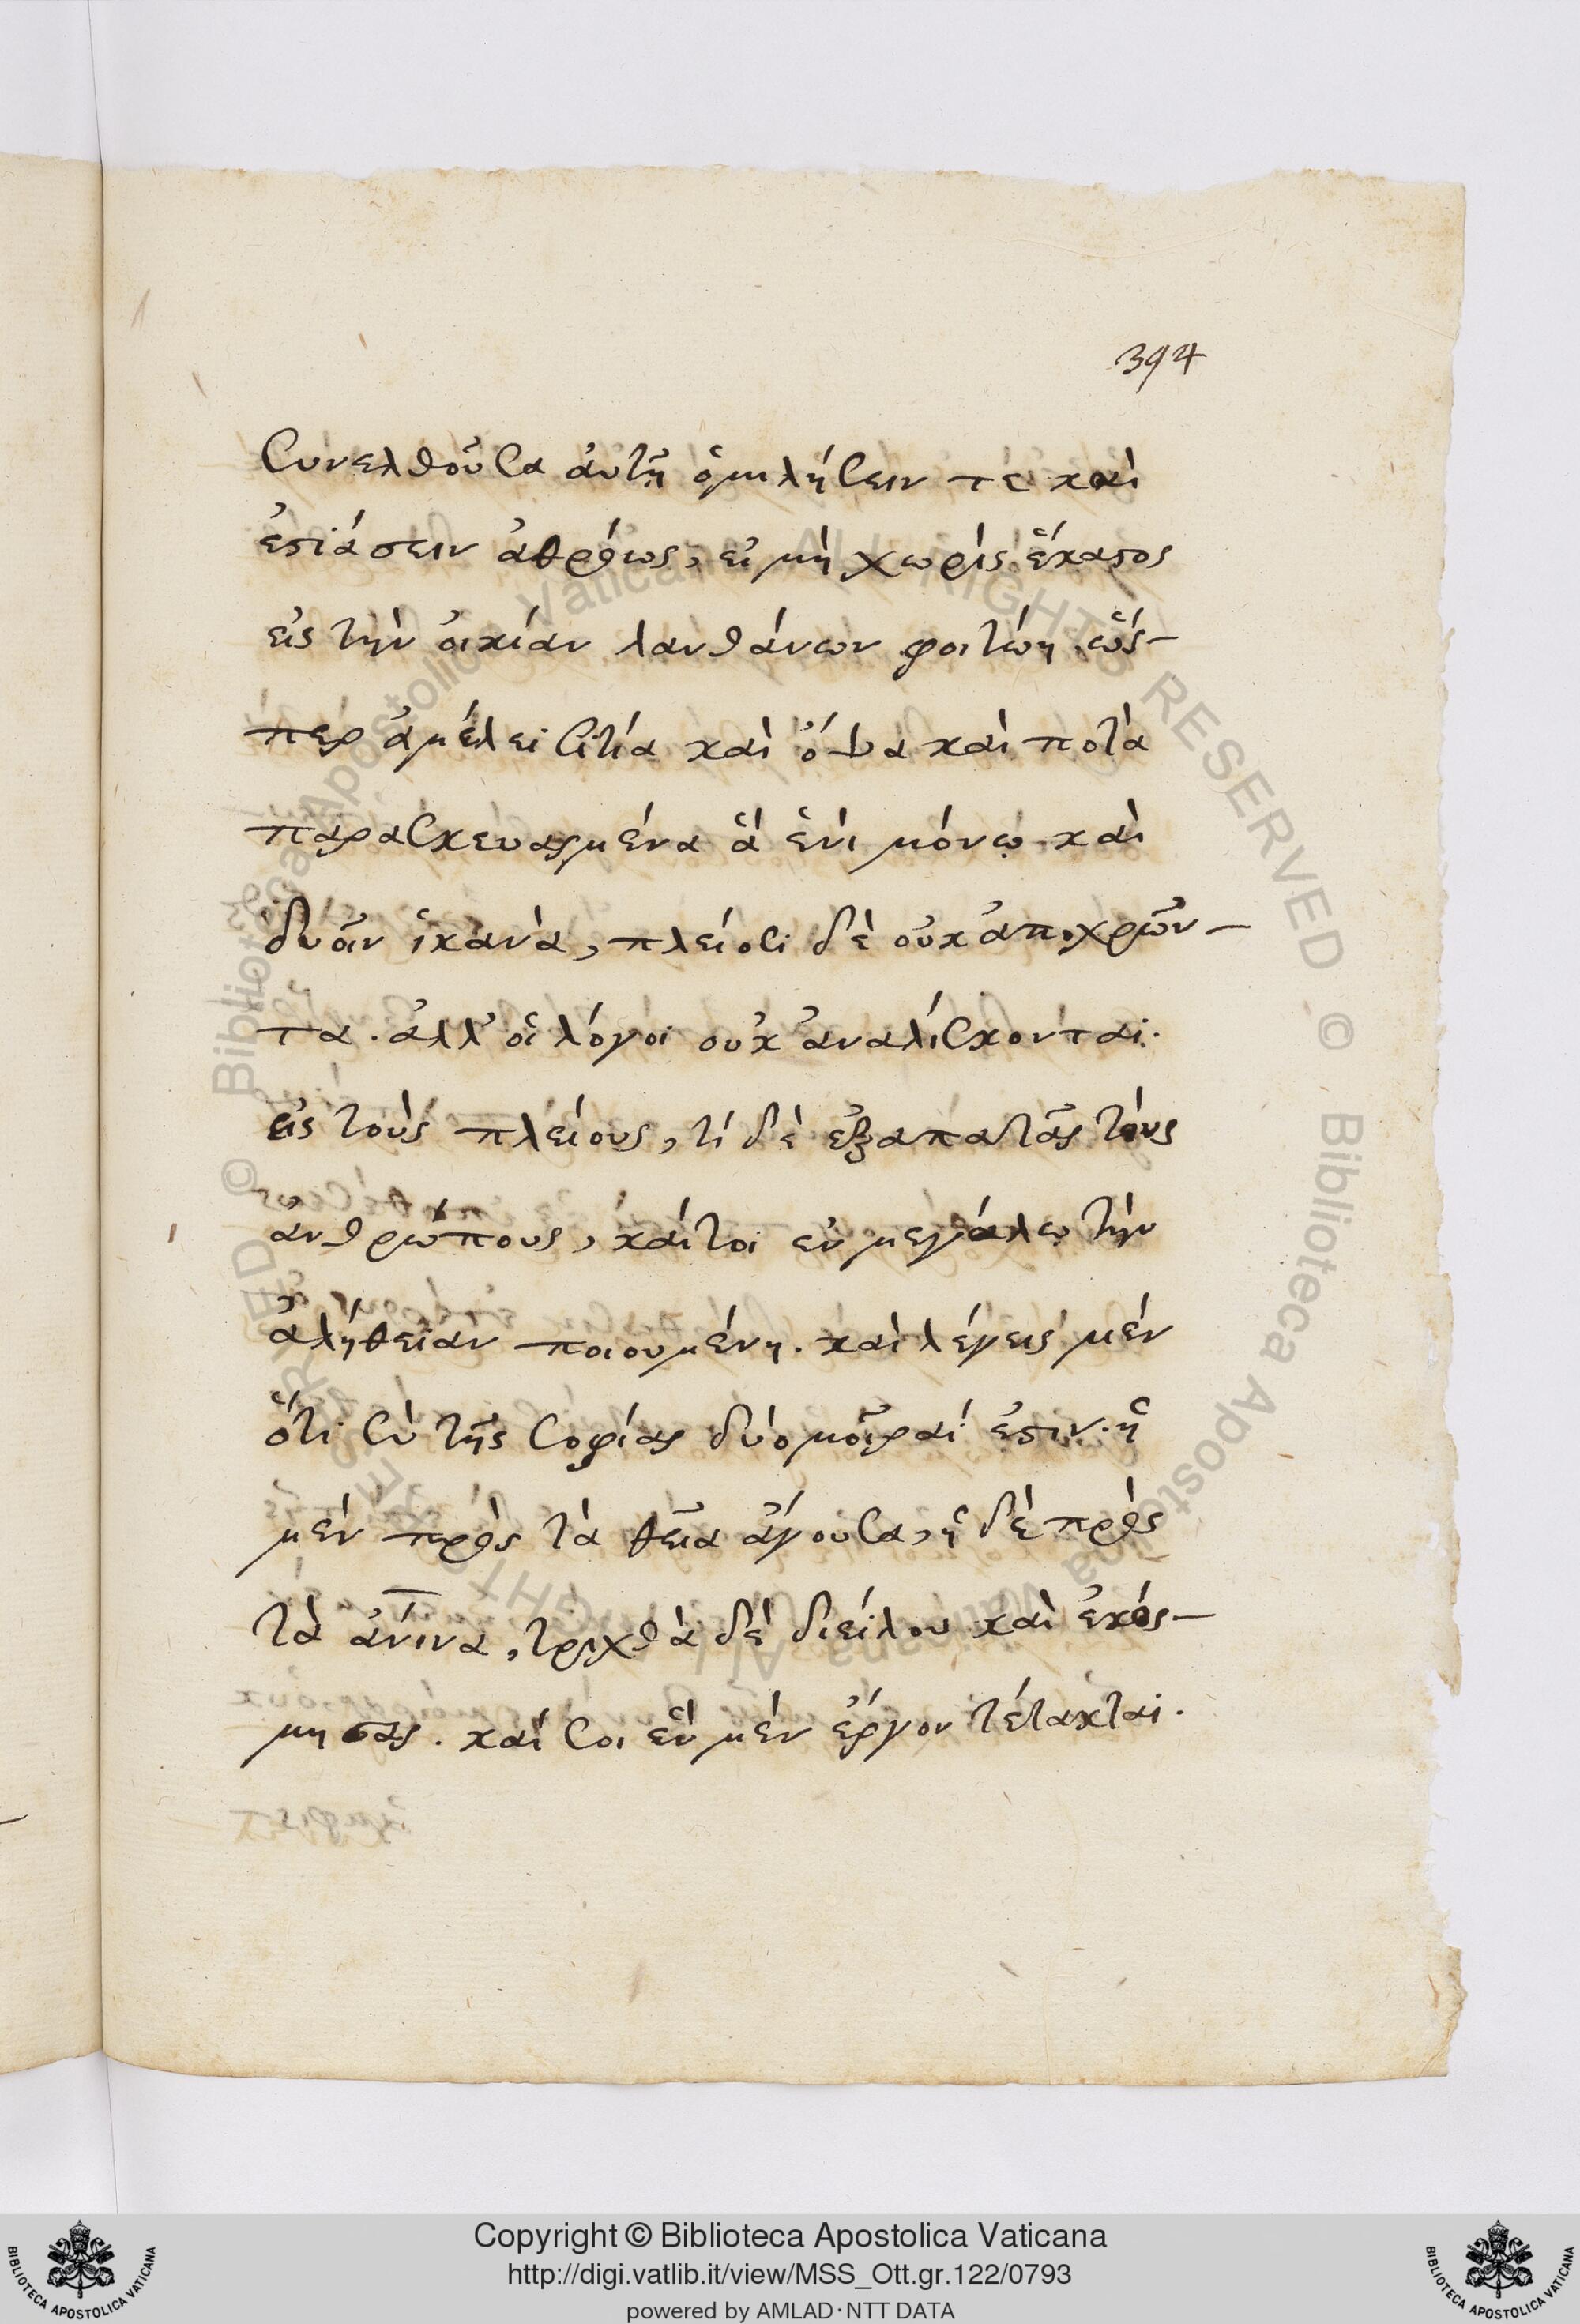 394
συνελθοῦσα ἀυτῆ ὁμιλήσειν τε καὶ
ἑστιάσειν ἀθρόως, εἰ μὴ χωρὶς ἕκαστος
εἰς τὴν οἰκίαν λανθάνων φοιτώη. ὥς-
περ ἀμέλει σιτία καὶ ὄψα καὶ ποτὰ
παρασκευασμένα ἃ ἑνὶ μόνῳ καὶ
δυοῖν ἱκανὰ, πλείοσι δὲ οὐκ ἀποχρῶν-
τα. ἀλλ' οἱ λόγοι οὐκ ἀναλίσκονται.
εἰς τοὺς πλείους, τί δὲ ἐξαπατᾶς τοὺς
ἀνθρώπους, καίτοι ἐν μεγάλῳ τὴν
ἀλήθειαν ποιουμένη. καὶ λέγεις μὲν
ὅτι σὺ τῆς σοφίας δύο μοῖραί ἐστιν. ἡ
μὲν πρὸς τὰ θεῖα ἄγουσα, ἡ δὲ πρὸς
τὰ ἀνινα, τριχθὰ δὲ διείλου καὶ ἐκόσ-
μησας. καί σοι ἓν μὲν ἔργον τέτακται.
Copyright © Biblioteca Apostolica Vaticana
http://digi.vatlib.it/view/MSS_Ott.gr.122/0793
powered by AMLAD·NTT DATA
BIBLIOTECA APOSTOLICA VATICANA
BIBLIOTECA APOSTOLICA VATICANA